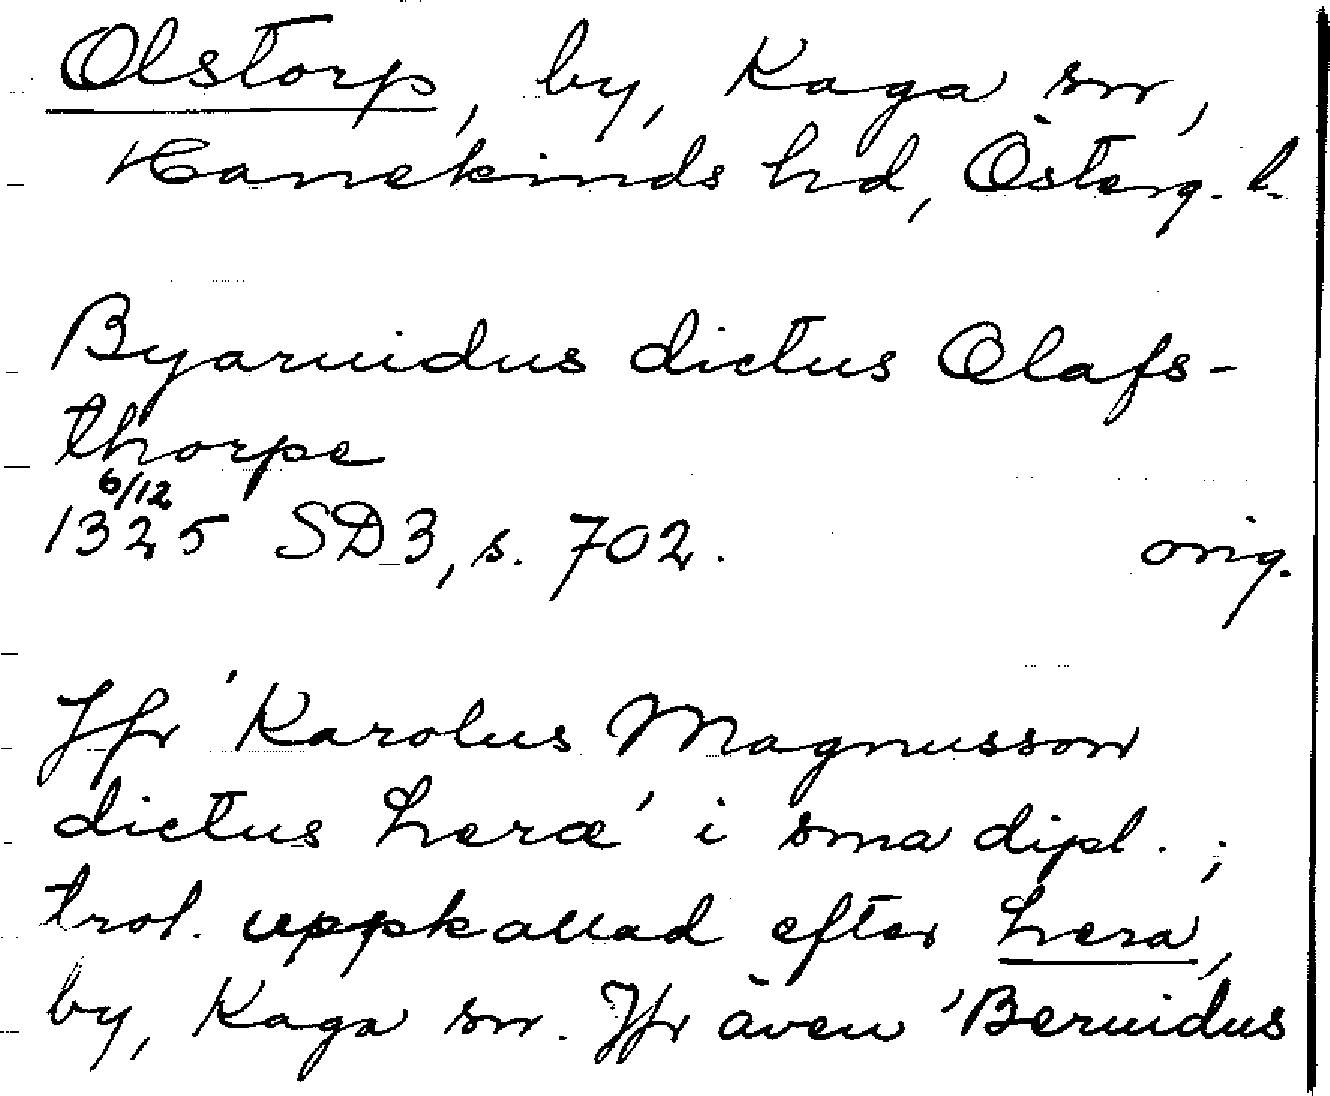 Olstorp, by, Kaga sn,
Hanekinds hd, Österg. l.
Byaruidus dictus Olafs-
thorpe
6/12
1325 SD3, s. 702. orig.
Jfr 'Karolus Magnusson
dictus hæræ' i sma dipl.;
trol. uppkallad efter Lera,
by, Kaga sn. Jfr även 'Beruidus